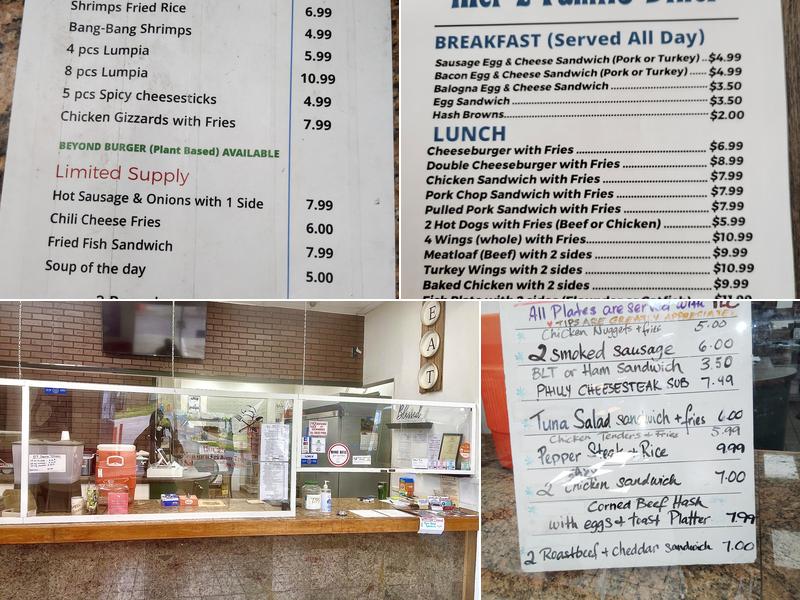 Shrimps Fried Rice 6.99
Bang-Bang Shrimps 4.99
4 pcs Lumpia 5.99
8 pcs Lumpia 10.99
5 pcs Spicy cheesesticks 4.99
Chicken Gizzards with Fries 7.99
BEYOND BURGER (Plant Based) AVAILABLE
Limited Supply
Hot Sausage & Onions with 1 Side 7.99
Chili Cheese Fries 6.00
Fried Fish Sandwich 7.99
Soup of the day 5.00
2 Family Diner
BREAKFAST (Served All Day)
Sausage Egg & Cheese Sandwich (Pork or Turkey) ..$4.99
Bacon Egg & Cheese Sandwich (Pork or Turkey) .....$4.99
Balogna Egg & Cheese Sandwich ..........$3.50
Egg Sandwich ..........$3.50
Hash Browns..........$2.00
LUNCH
Cheeseburger with Fries ..........$6.99
Double Cheeseburger with Fries ..........$8.99
Chicken Sandwich with Fries ..........$7.99
Pork Chop Sandwich with Fries ..........$7.99
Pulled Pork Sandwich with Fries ..........$7.99
2 Hot Dogs with Fries (Beef or Chicken) ..........$5.99
4 Wings (whole) with Fries..........$10.99
Meatloaf (Beef) with 2 sides ..........$9.99
Turkey Wings with 2 sides ..........$10.99
Baked Chicken with 2 sides ..........$9.99
E
A
T
Blessed
All Plates are served with
TIPS ARE GREATLY APPRECIATED
Chicken Nuggets + fries 5.00
2 smoked sausage 6.00
BLT or Ham Sandwich 3.50
PHILLY CHEESESTEAK SUB 7.49
Tuna Salad sandwich + fries 6.00
Chicken Tenders + Fries 5.99
Pepper Steak + Rice 9.99
2 Chicken sandwich 7.00
Corned Beef Hash
with eggs + toast Platter 7.99
2 Roastbeef + Cheddar sandwich 7.00